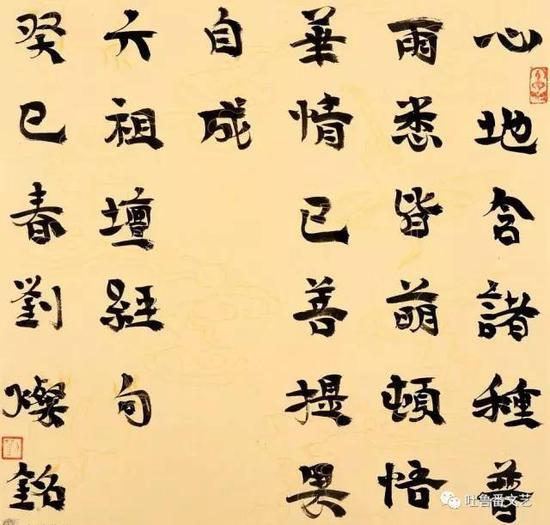 心地含諸種普
雨悉皆萌頓悟
華情已菩提果
自成
六祖壇經句
癸巳春劉燦銘
吐鲁番文艺